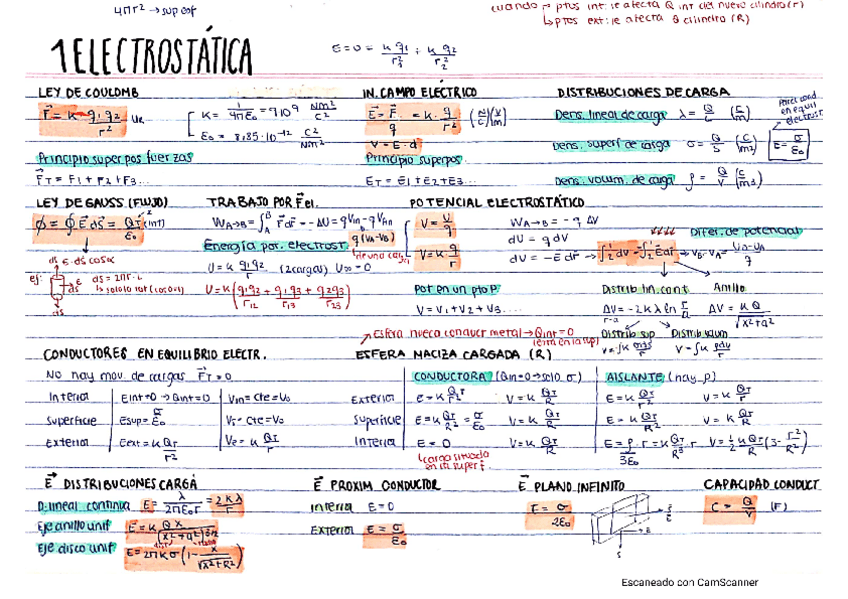 4πr² → sup esf
cuando r ptos int: le afecta Q int del nuevo cilindro (r)
↳ ptos ext: le afecta Q cilindro (R)
1 ELECTROSTÁTICA
LEY DE COULOMB
F = K q₁q₂/r²
K = 1/4πε₀ = 9·10⁹ Nm²/C²
ε₀ = 8,85·10⁻¹² C²/Nm²
Principio superpos fuerzas
F_T = F₁ + F₂ + F₃...
IN. CAMPO ELÉCTRICO
E = F/q = K · q/r² (N/C)(V/m)
V = E·d
Principio superpos.
E_T = E₁ + E₂ + E₃...
DISTRIBUCIONES DE CARGA
Dens. lineal de carga λ = Q/L (C/m)
Dens. superf de carga σ = Q/S (C/m²)
E = σ/ε₀
Dens. volum. de carga ρ = Q/V (C/m³)
LEY DE GAUSS (FLUJO)
ϕ = ∮ E ds = Q_T (int)/ε₀
ds E · ds cos α
ej:
ds = 2πr · L
TRABAJO POR F el.
W_A→B = ∫_A^B F dr = -ΔU = q V_A - q V_B
q(V_A-V_B)
Energía pot. electrost.
de una carga
U = K q₁q₂/r (2 cargas) U∞ = 0
U = K (q₁q₂/r₁₂ + q₁q₃/r₁₃ + q₂q₃/r₂₃)
POTENCIAL ELECTROSTÁTICO
V = U/q
V = K q/r
W_A→B = -q ΔV
dU = q dV
dV = -E dr → ∫₁² dV = -∫₁² E dr → V_B - V_A = U_B - U_A/q
Difer. de potencial
Pot en un pto P
V = V₁ + V₂ + V₃...
Distrib lin. cont.
Anillo
ΔV = KQ/√(x²+a²)
Distrib sup
Distrib volum
→ Esfera hueca conductor metal → Q int = 0
CONDUCTORES EN EQUILIBRIO ELECTR.
No hay mov. de cargas F_T = 0
Interior E int = 0 → Q int = 0 V in = cte = V₀
Superficie E sup = σ/ε₀ V s = cte = V₀
Exterior E ext = K Q_T/r² V e = K Q_T/r
ESFERA MACIZA CARGADA (R)
CONDUCTORA (Q in = 0 → solo σ)
AISLANTE (hay ρ)
Exterior E = K Q_T/r² V = K Q_T/r E = K Q_T/r² V = K Q_T/r
Superficie E = K Q_T/R² = σ/ε₀ V = K Q_T/R E = K Q_T/R² V = K Q_T/R
Interior E = 0 V = K Q_T/R E = ρ/3ε₀ · r = K Q_T/R³ · r V = 1/2 K Q_T/R (3 - r²/R²)
↳ carga situada en su superf.
E DISTRIBUCIONES CARGA
D. lineal continua E = λ/2πε₀r = 2Kλ/r
Eje anillo unif E = K Qx/(x²+a²)^3/2
Eje disco unif E = 2πKσ (1 - x/√(x²+R²))
E PROXIM CONDUCTOR
Interior E = 0
Exterior E = σ/ε₀
E PLANO INFINITO
E = σ/2ε₀
CAPACIDAD CONDUCT
C = Q/V (F)
Escaneado con CamScanner